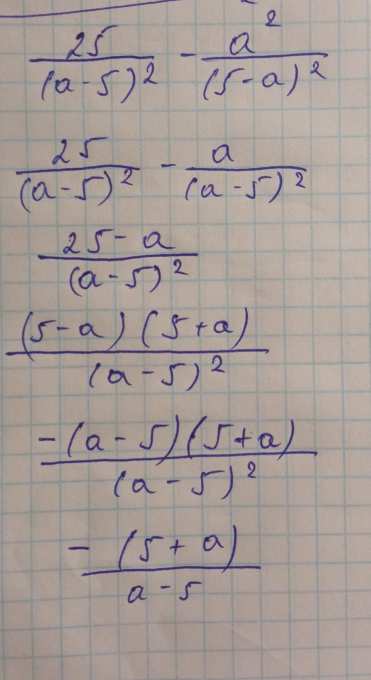 25/(a-5)² - a²/(5-a)²
25/(a-5)² - a/(a-5)²
25-a/(a-5)²
(5-a)(5+a)/(a-5)²
-(a-5)(5+a)/(a-5)²
-(5+a)/a-5